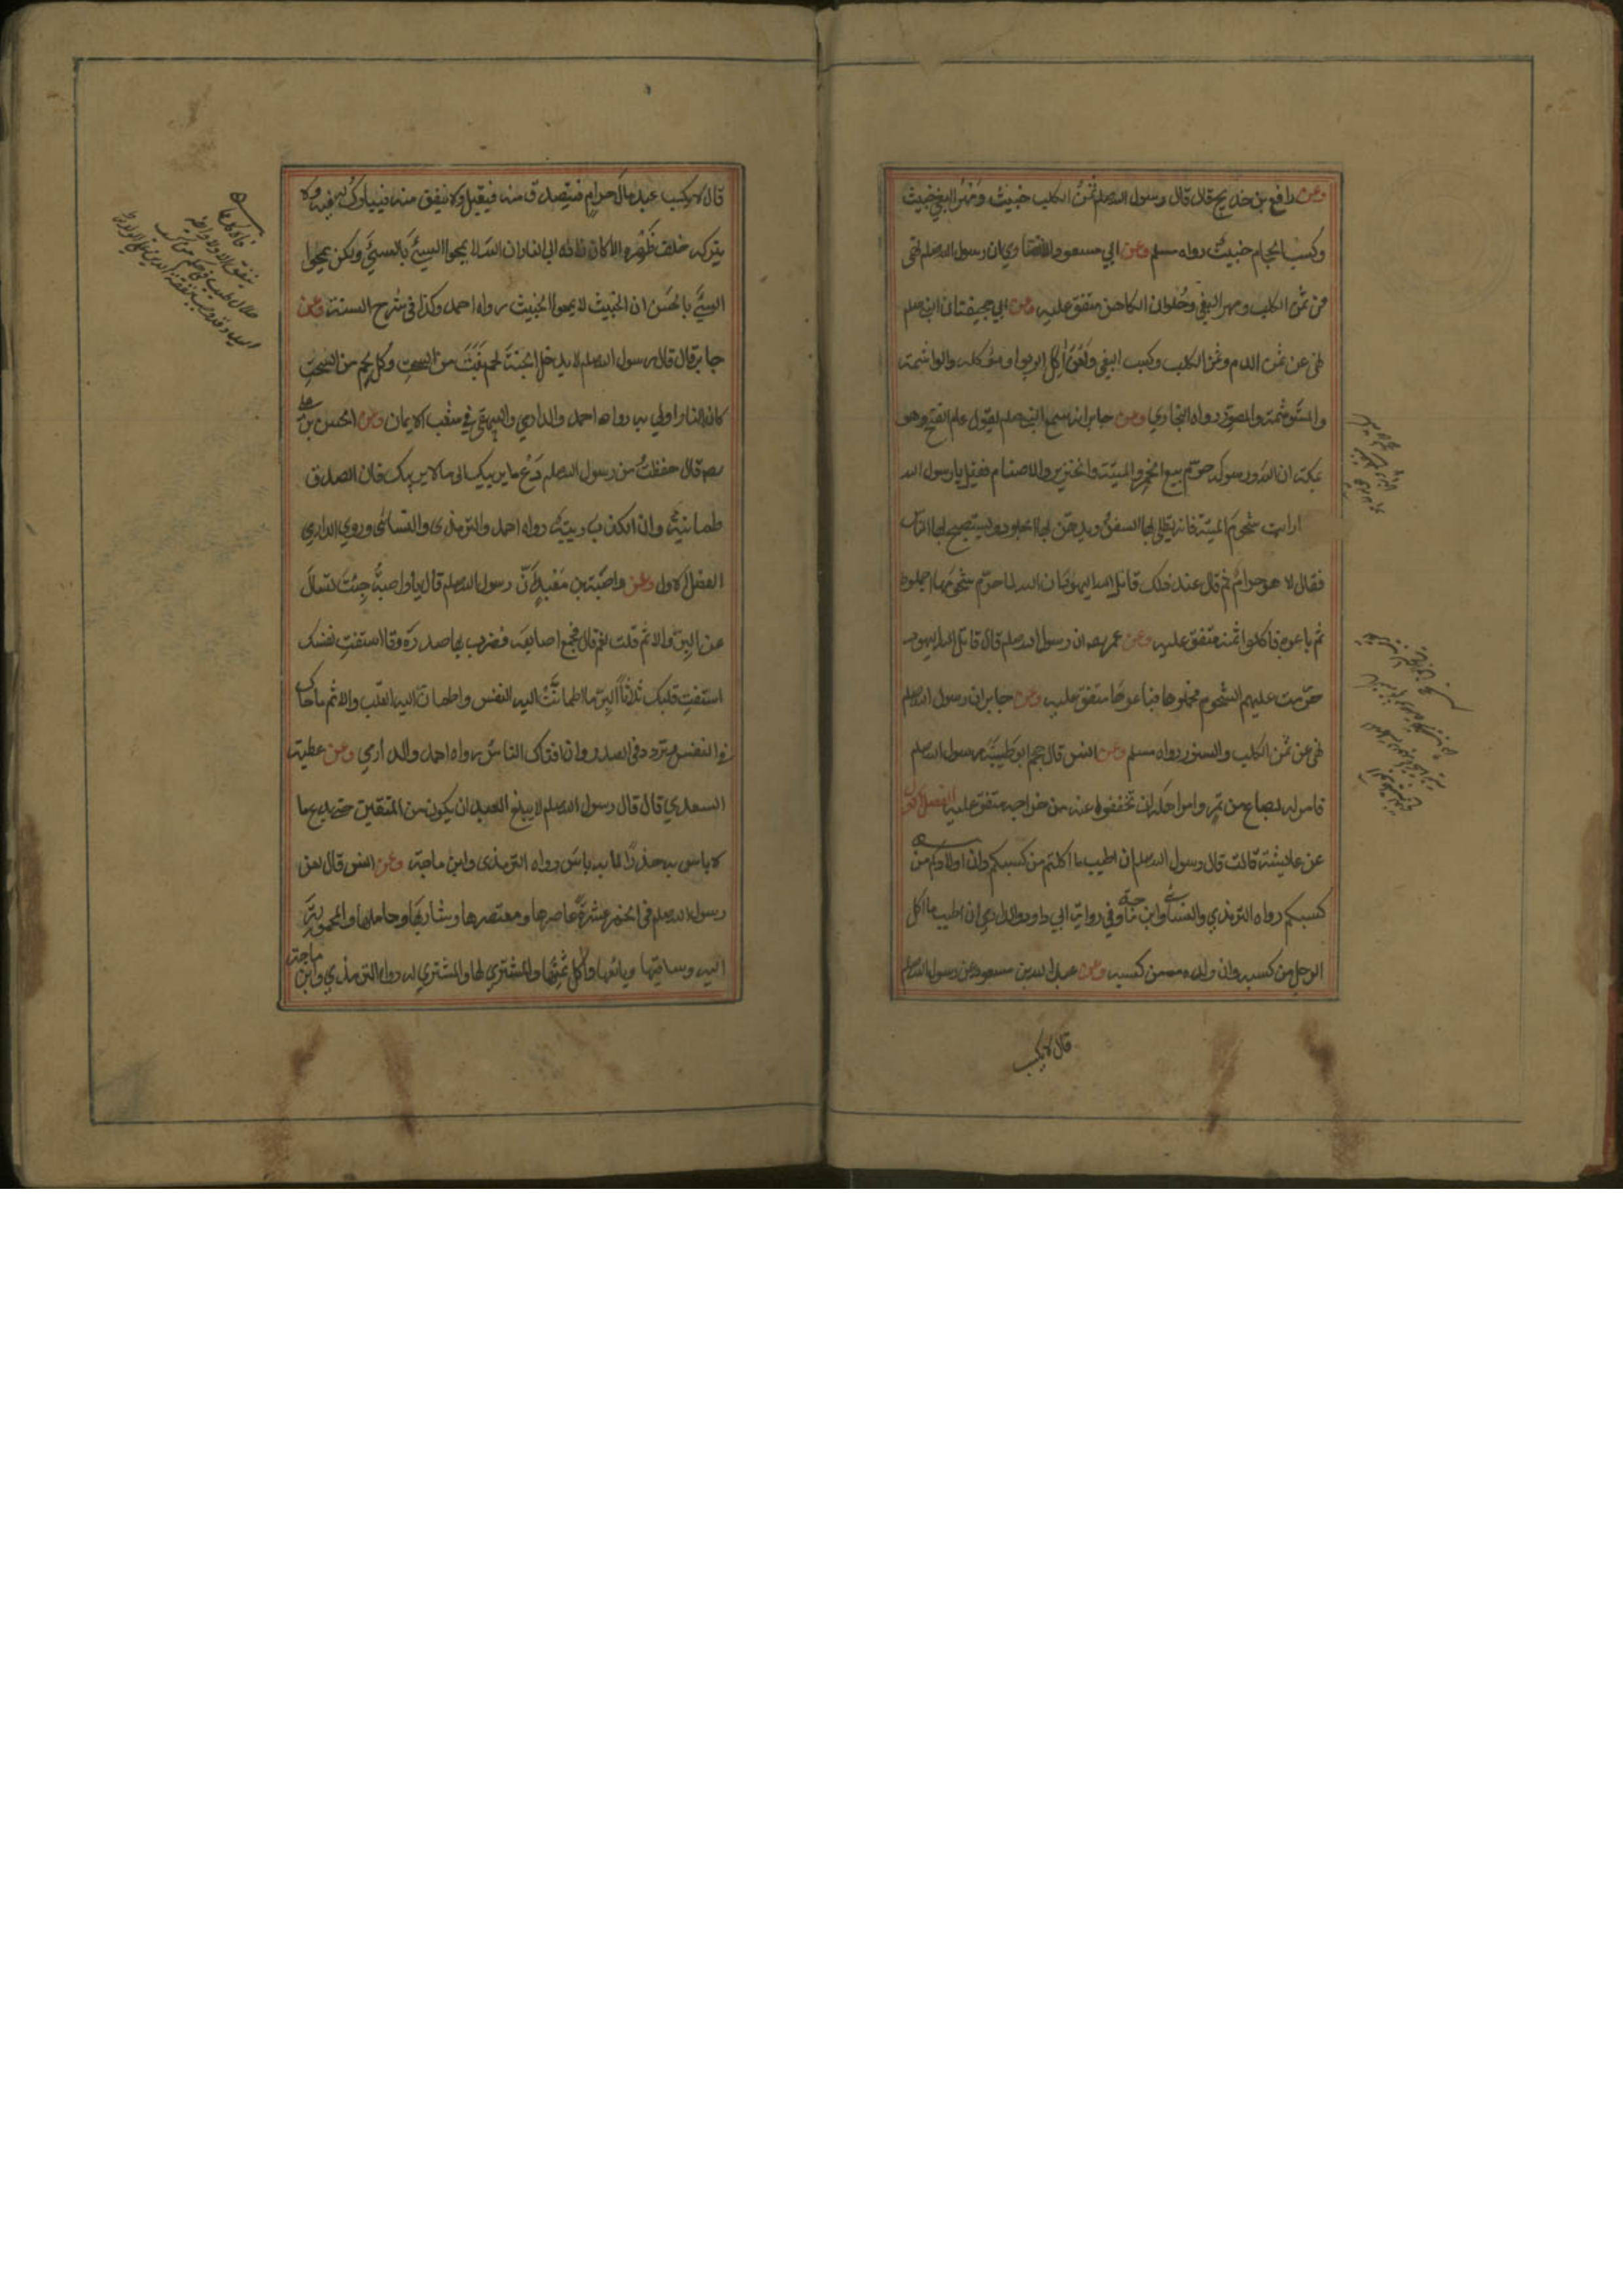 وعن رافع بن خديج قال قال رسول الله صلعم ثمن الكلب خبيث ومهر البغي خبيث
وكسب الحجام خبيث رواه مسلم وعن ابي مسعود الانصاري ان رسول الله صلعم نهى
عن ثمن الكلب ومهر البغي وحلوان الكاهن متفق عليه وعن ابي جحيفة ان النبي صلعم
نهى عن ثمن الدم وثمن الكلب وكسب البغي ولعن آكل الربوا وموكله والواشمة
والمستوشمة والمصور رواه البخاري وعن جابر انه سمع النبي صلعم يقول عام الفتح وهو
بمكة ان الله ورسوله حرّم بيع الخمر والميتة والخنزير والاصنام فقيل يا رسول الله
ارايت شحوم الميتة فانه يطلى بها السفن ويدهن بها الجلود ويستصبح بها الناس
فقال لا هو حرام ثم قال عند ذلك قاتل الله اليهود ان الله لما حرّم شحومها اجملوه
ثم باعوه فاكلوا ثمنه متفق عليه وعن عمر رضه ان رسول الله صلعم قال قاتل الله اليهود
حرّمت عليهم الشحوم فجملوها فباعوها متفق عليه وعن جابر ان رسول الله صلعم
نهى عن ثمن الكلب والسنور رواه مسلم وعن انس قال حجم ابو طيبة رسول الله صلعم
فامر له بصاع من تمر وامر اهله ان يخففوا عنه من خراجه متفق عليه الفصل
عن عايشة قالت قال رسول الله صلعم ان اطيب ما اكلتم من كسبكم وان اولادكم من
كسبكم رواه الترمذي والنسائي وابن ماجة وفي رواية ابي داود والدارمي ان اطيب ما اكل
الرجل من كسبه وان ولده من كسبه وعن عبد الله بن مسعود عن رسول الله صلعم
قال لا يكسب
قال لا يكسب عبد مال حرام فيتصدق منه فيقبل ولا ينفق منه فيبارك له فيه ولا
يتركه خلف ظهره الا كان زاده الى النار ان الله لا يمحوا السيئ بالسيئ ولكن يمحوا
السيئ بالحسن ان الخبيث لا يمحوا الخبيث رواه احمد وكذا في شرح السنة وعن
جابر قال قال رسول الله صلعم لا يدخل الجنة لحم نبت من السحت وكل لحم من السحت
كان النار اولى به رواه احمد والدارمي والبيهقي في شعب الايمان وعن الحسن بن علي
رضه قال حفظت من رسول الله صلعم دع ما يريبك الى ما لا يريبك فان الصدق
طمانينة وان الكذب ريبة رواه احمد والترمذي والنسائي وروى الدارمي
الفصل الاول وعن وابصة بن معبد ان رسول الله صلعم قال يا وابصة جئت تسال
عن البر والاثم قلت نعم قال فجمع اصابعه فضرب بها صدره وقال استفت نفسك
استفت قلبك ثلاثا البر ما اطمانّت اليه النفس واطمان اليه القلب والاثم ما حاك
في النفس وتردد في الصدر وان افتاك الناس رواه احمد والدارمي وعن عطية
السعدي قال قال رسول الله صلعم لا يبلغ العبد ان يكون من المتقين حتى يدع ما
لا باس به حذرا لما به باس رواه الترمذي وابن ماجة وعن انس قال لعن
رسول الله صلعم في الخمر عشرة عاصرها ومعتصرها وشاربها وحاملها والمحمولة
اليه وساقيها وبائعها وآكل ثمنها والمشتري لها والمشترى له رواه الترمذي وابن ماجة